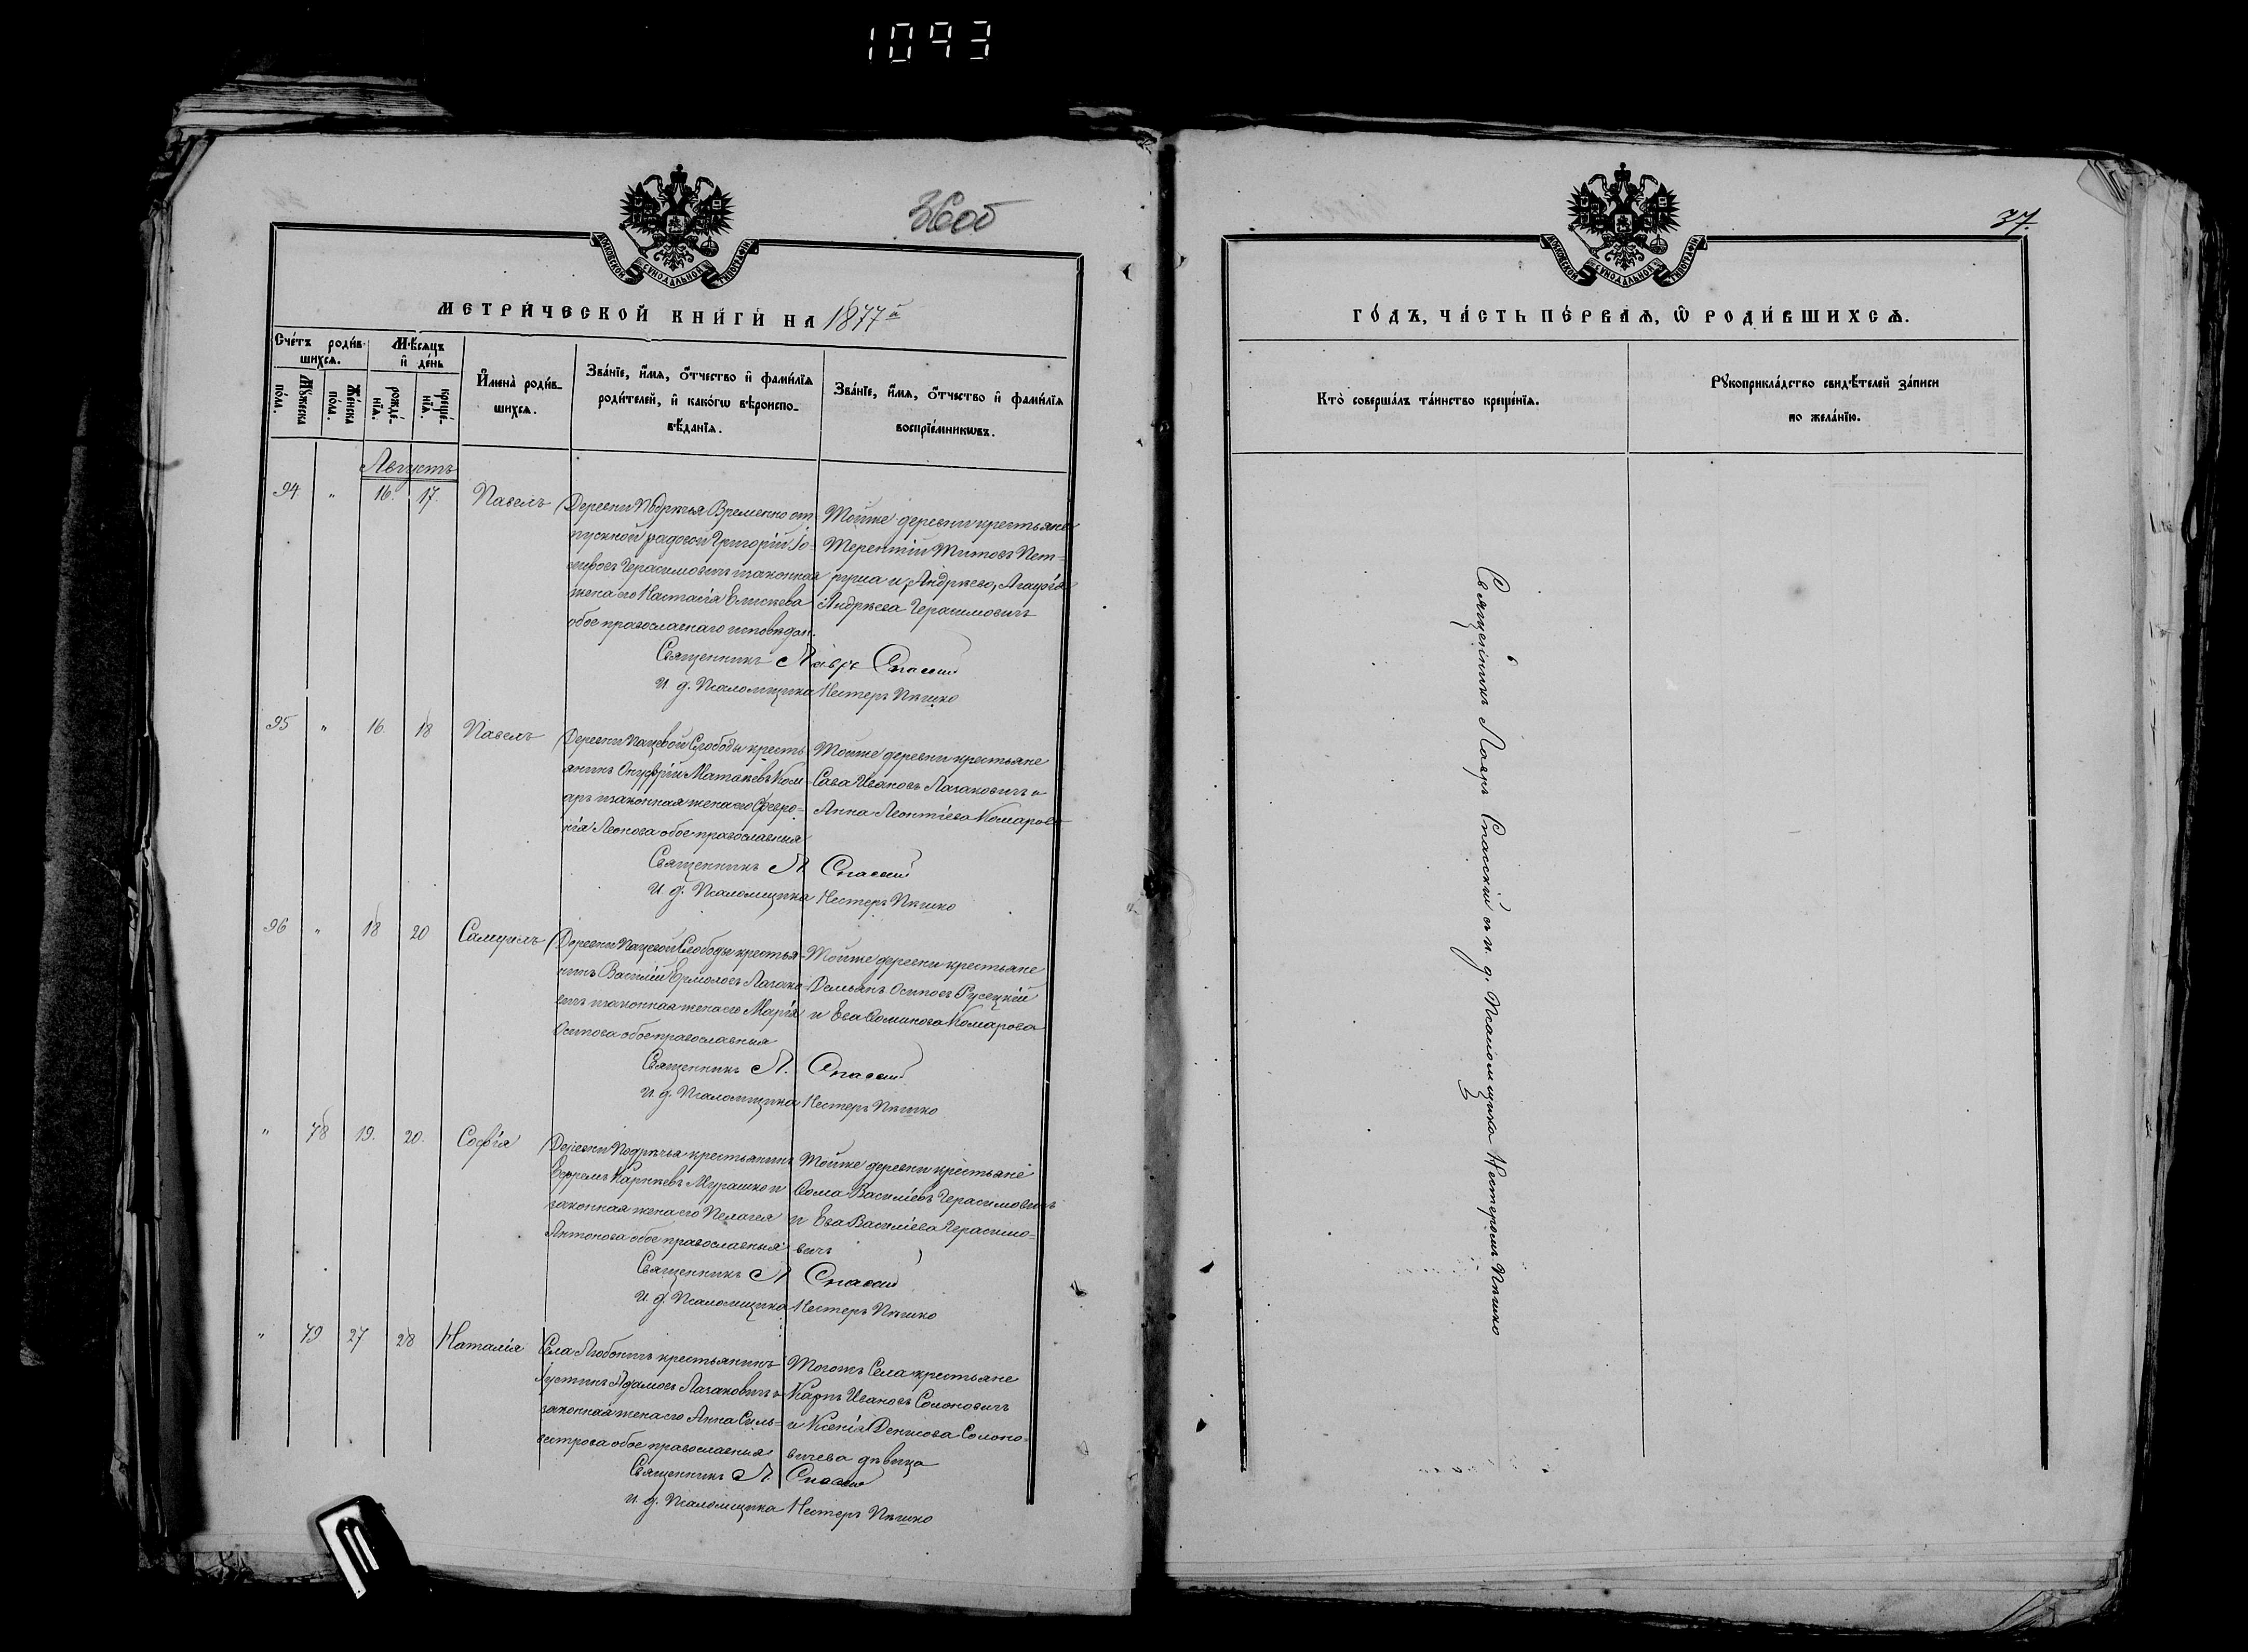 1093
36об
МОСКОВСКОЙ СУНОДАЛЬНОЙ ТИПОГРАФІИ
МЕТРИ́ЧЕСКОЙ КНИ́ГИ НА 1877й
Сче́тъ роди́вшихсѧ.
Мꙋжеска по́ла.
Же́нска по́ла.
Мѣ́сѧцъ и҆ де́нь
рожде́нїѧ.
креще́нїѧ.
И҆мена̀ роди́вшихсѧ.
Зва́нїе, и҆́мѧ, ѻ҆́тчество и҆ фами́лїѧ
роди́телей, и҆ како́гѡ вѣроиспо-
вѣ́данїѧ.
Зва́нїе, и҆́мѧ, ѻ҆́тчество и҆ фами́лїѧ
воспрїе́мникѡвъ.
Августъ
94 " 16. 17. Павелъ
Деревни Подрѣчья Временно от-
пускной рядовой Григорій Іо-
сифовъ Герасимовичъ и законная
жена его Настасія Елисѣева
обое православнаго исповѣдан.
Тойже деревни крестьяне
Терентій Титовъ Пет-
Андрѣева Герасимовичъ
Священникъ Лавръ Спасскій
И. д. Псаломщика Нестеръ Пѣшко
95 " 16 18 Павелъ
Деревни Пацевой Слободы кресть-
янинъ Онуфрій Матѳѣевъ Ком-
аръ и законная жена его Февро-
нія Леонова обое православныя
Тойже деревни крестьяне
Сава Ивановъ Лагановичъ и
Анна Леонтіева Комарова
Священникъ Л. Спасскій
И. д. Псаломщика Нестеръ Пѣшко
96 " 18 20 Самуилъ
Деревни Пацевой Слободы крестья-
нинъ Василій Ермоловъ Лагано-
вичъ и законная жена его Марія
Осипова обое православныя
Тойже деревни крестьяне
Демьянъ Осиповъ Русецкій
и Ева Ѳомина Комарова
Священникъ Л. Спасскій
И. д. Псаломщика Нестеръ Пѣшко
" 78 19. 20. Софія
Деревни Подрѣчья крестьянинъ
Ефремъ Карпѣевъ Мурашко и
законная жена его Пелагея
Антонова обое православныя
Тойже деревни крестьяне
Ѳома Василіевъ Герасимовичъ
и Ева Василіева Герасимо-
вичъ
Священникъ Л. Спасскій
И. д. Псаломщика Нестеръ Пѣшко
" 79 27 28 Наталія
Села Любоничъ крестьянинъ
Іустинъ Адамовъ Лагановичъ и
законная жена его Анна Силь-
вестрова обое православныя
Тогожъ Села крестьяне
Карпъ Ивановъ Солоновичъ
и Ксенія Денисова Солоно-
вичева дѣвица
Священникъ Л. Спасскій
И. д. Псаломщика Нестеръ Пѣшко
37.
МОСКОВСКОЙ СУНОДАЛЬНОЙ ТИПОГРАФІИ
ГО́ДЪ, ЧА́СТЬ ПЕ́РВАѦ, Ѽ РОДИ́ВШИХСѦ.
Кто̀ соверша́лъ та́инство креще́нїѧ.
Рꙋкоприкла́дство свидѣ́телей за́писи
по жела́нїю.
Священникъ Лавръ Спасскій съ и. д. Псаломщика Нестеромъ Пѣшко